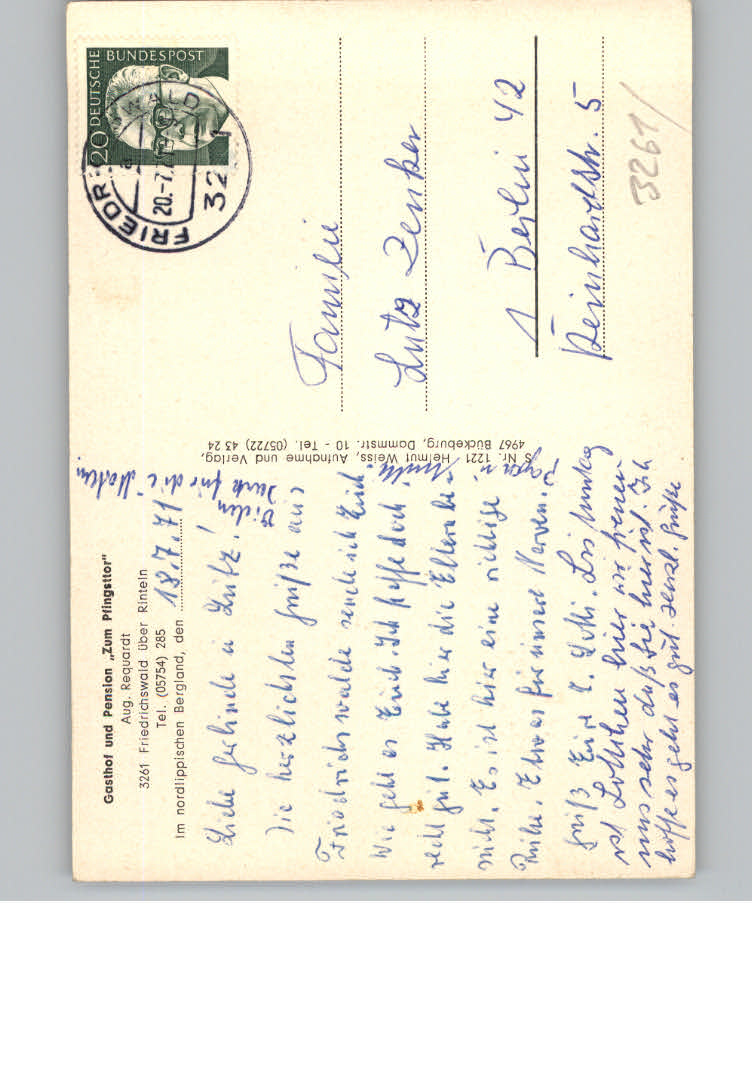 Gasthof und Pension „Zum Pfingsttor"
Aug. Requardt
3261 Friedrichswald über Rinteln
Tel. (05754) 285
Im nordlippischen Bergland, den 18.7.71
Vielen
Dank für die Karten
Liebe Gerlinde u Lutz!
Die herzlichsten Grüße aus
Friedrichswalde sende ich Euch.
Wie geht es Euch. Ich hoffe doch
recht gut. Habe hier die Eltern
nicht. Es ist hier eine richtige
Ruhe. Etwas für unsere Nerven.
Gruß Eure L. Lotti. Bis
ist Lottchen hier wir freuen
uns sehr daß sie hier ist. Ich
hoffe es geht es gut. Herzl. Grüße
S Nr. 1221 Helmut Weiss, Aufnahme und Verlag,
4967 Bückeburg, Dammstr. 10 - Tel. (05722) 43 24
DEUTSCHE BUNDESPOST
20
FRIEDR WALD
a
20.-7.71
32 1
Familie
Lutz Zenker
1 Berlin 42
Reinhardtstr. 5
3261/